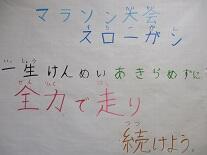 マラソン大会
スローガン
一生けんめいあきらめずに
全力で走り
続けよう。